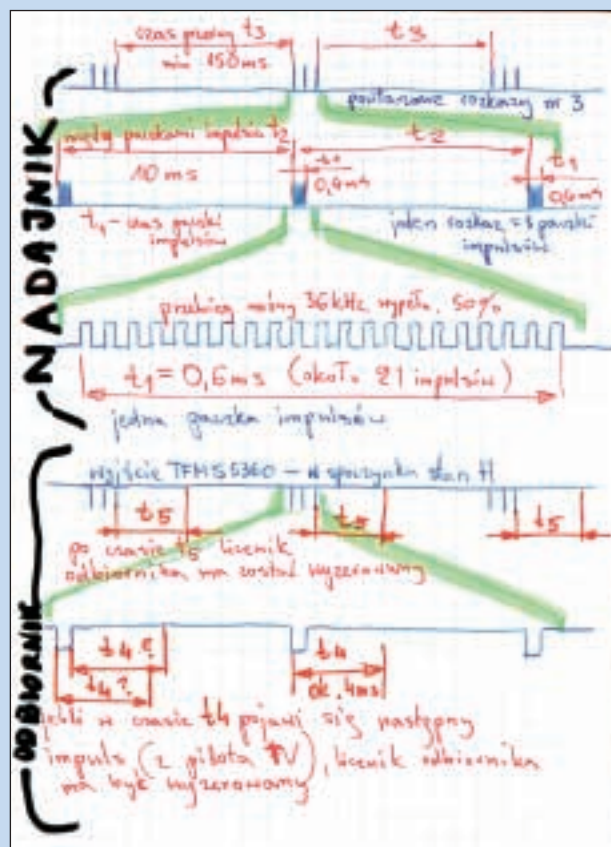 NADAJNIK
czas przerwy t3
min 150ms
t3
powtarzane rozkazy nr 3
między paczkami impulsów t2
10ms
t2
t1
0,6ms
t1
0,6ms
t1 - czas paczki
impulsów
jeden rozkaz = 3 paczki
impulsów
przebieg nośny 36kHz wypełn. 50%
t1 = 0,6ms (około 21 impulsów)
jedna paczka impulsów
ODBIORNIK
wyjście TFMS5360 - w spoczynku stan H
t5
t5
t5
po czasie t5 licznik
odbiornika ma zostać wyzerowany
t4?
t4?
t4
ok. 4ms
jeśli w czasie t4 pojawi się następny
impuls (z pilota TV), licznik odbiornika
ma być wyzerowany